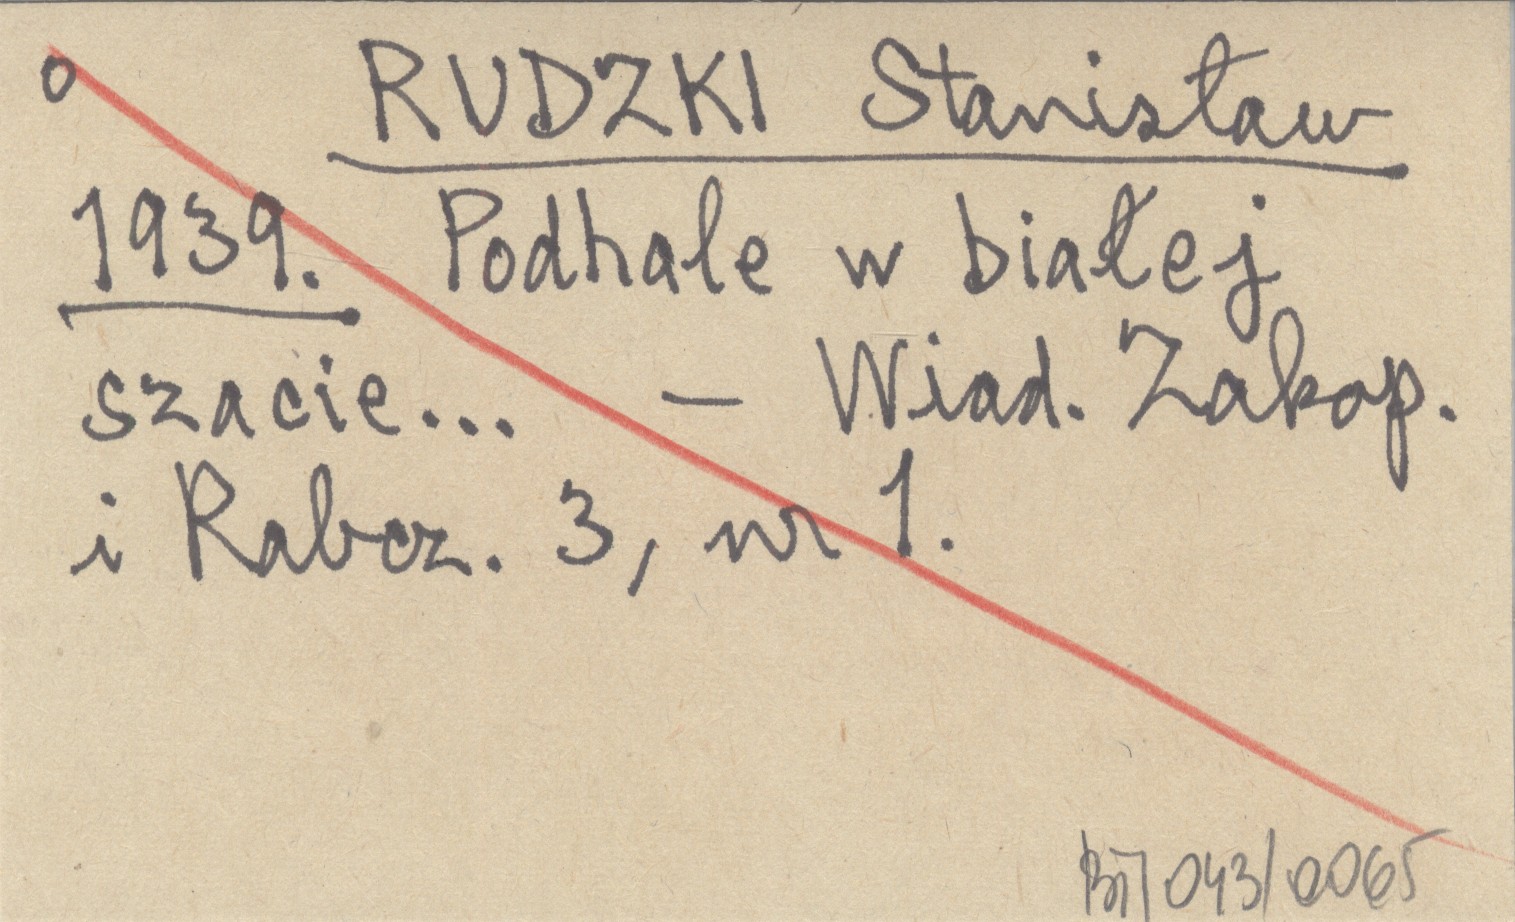 o RUDZKI Stanisław
1939. Podhale w białej
szacie... — Wiad. Zakop.
i Rabcz. 3, nr 1.
043/0065